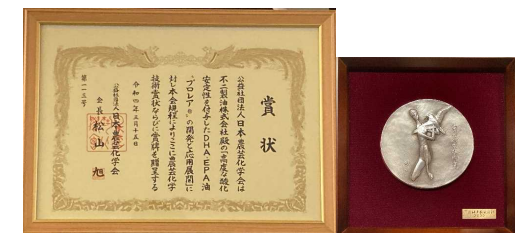 賞状
公益社団法人日本農芸化学会は
不二製油株式会社殿の「高度な酸化
安定性を付与したDHA、EPA油
“プロレア®”の開発と応用展開」に
対し本会規程によりここに農芸化学
技術賞状ならびに賞牌を贈呈する
令和四年三月十五日
公益社団法人
日本農芸化学会
会長 松山 旭